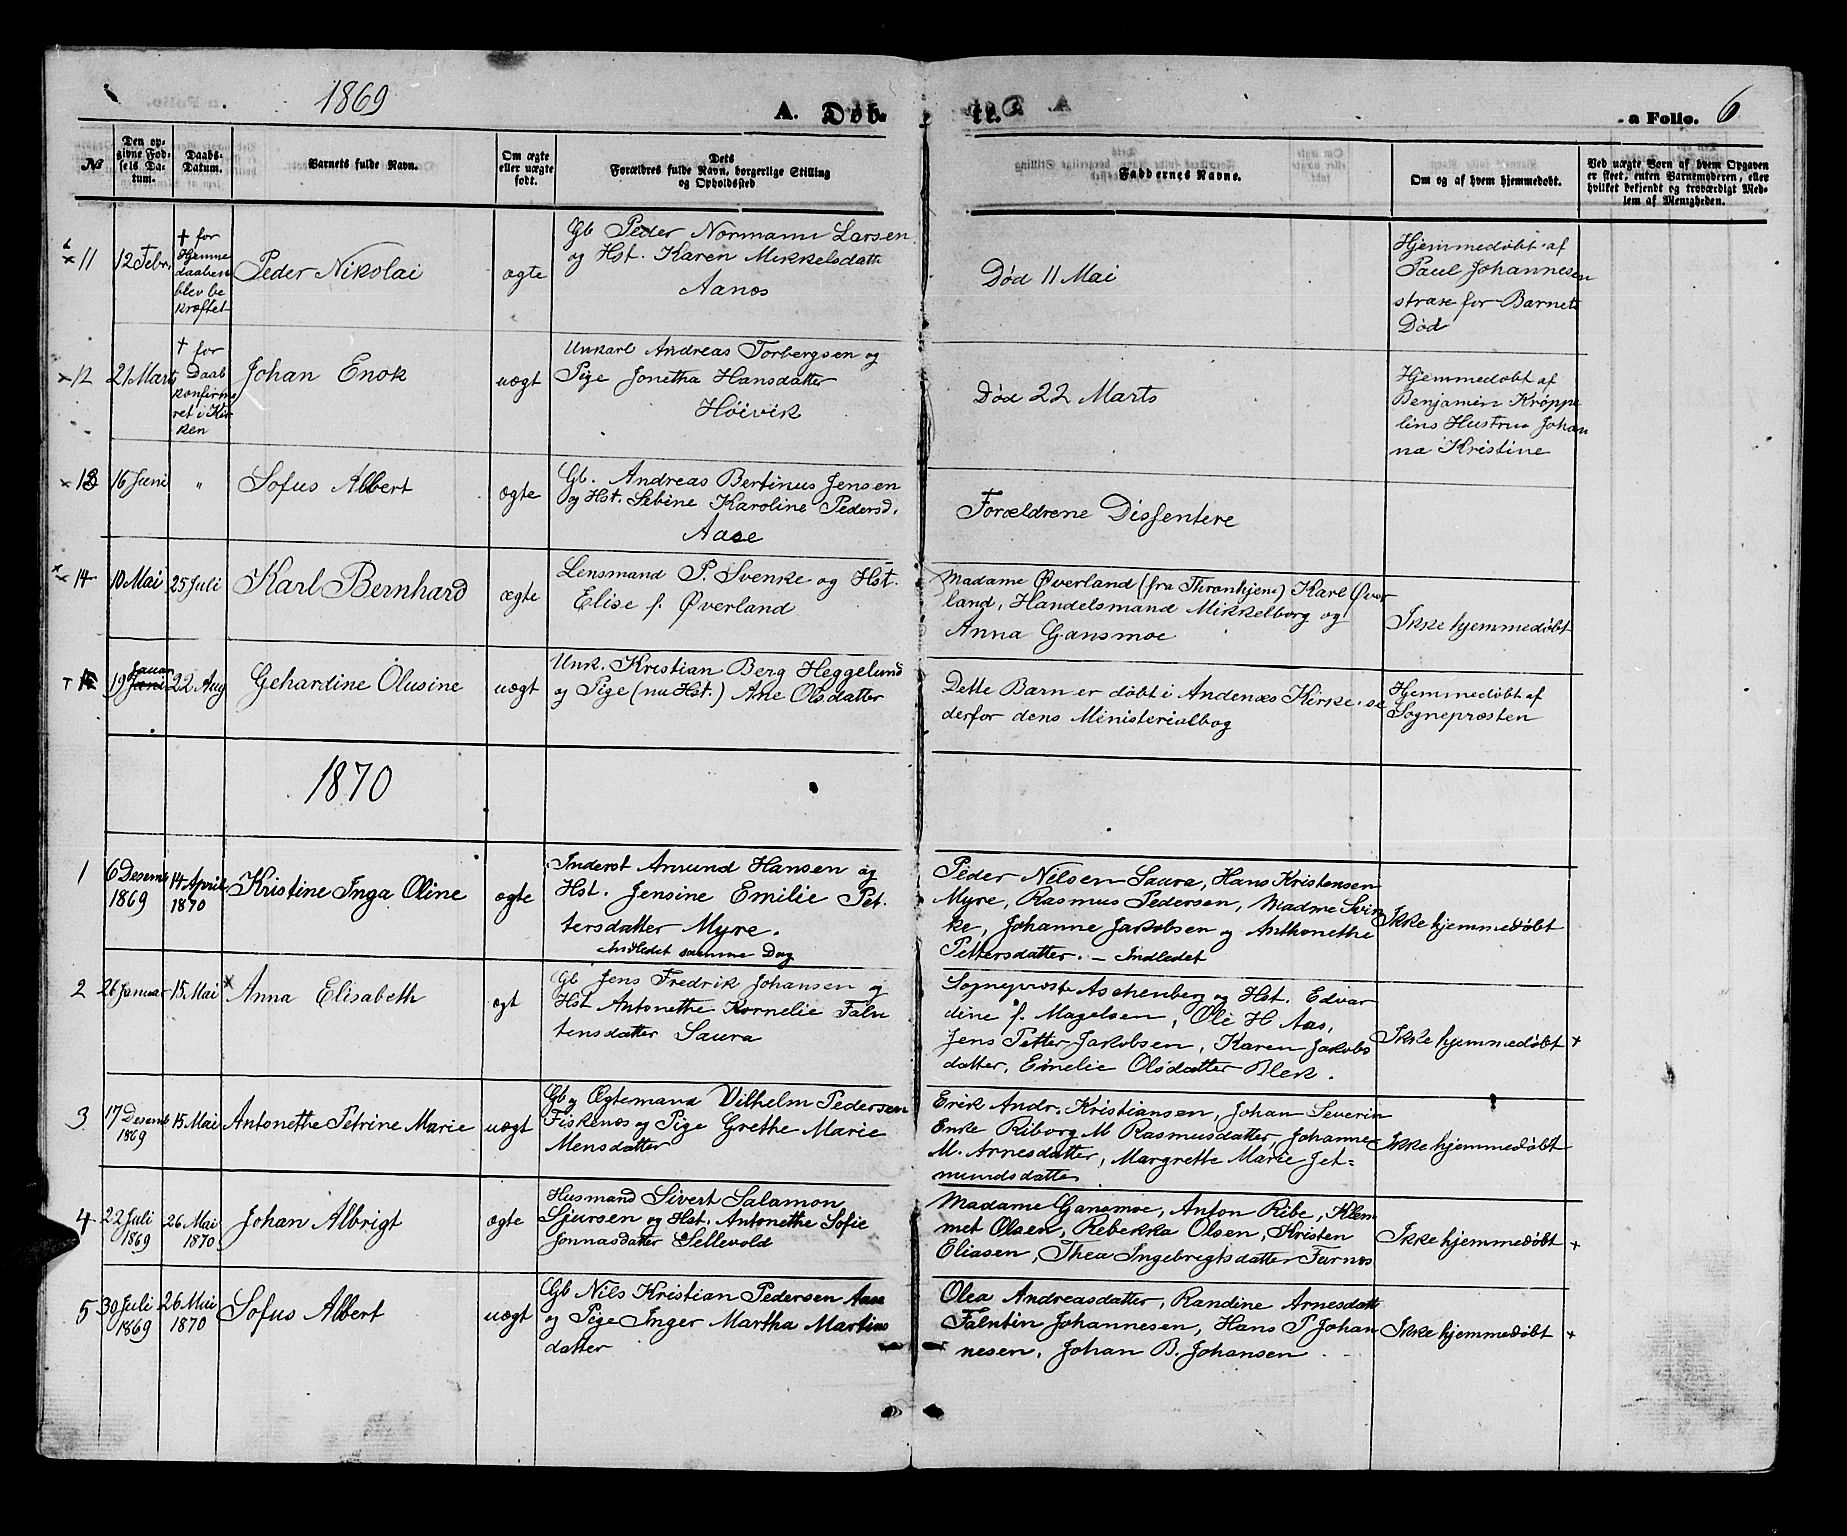 1869
A. Døb-
te.
a Folio. 6
№
Den op-
givne Fød-
sels Da-
tum.
Daabs-
Datum.
Barnets fulde Navn.
Om ægte
eller uægte
født.
Dets
Forældres fulde Navn, borgerlige Stilling
og Opholdssted
Faddernes Navne.
Om og af hvem hjemmedøbt.
Ved uægte Børn af hvem Opgaven
er skeet, enten Barnemoderen, eller
hvilket bekjendt og troværdigt Med-
lem af Menigheden.
11
12 Febr.
† for
Hjemme
daaben
blev be
kræftet
Peder Nikolai
ægte
Gb Peder Normann Larsen
og Hst. Karen Mikkelsdatt
Aanes
Død 11 Mai
Hjemmedøbt af
Paul Johannesen
strax før Barnets
Død
12
21 Marts
† for
Daab
konfirme
ret i Kir
ken
Johan Enok
uægt
Unkarl Andreas Torbergsen og
Pige Jonetha Hansdatter
Høivik
Død 22 Marts
Hjemmedøbt af
Benjamin Krøppe
lins Hustru Johan
na Kristine
13
16 Juni
"
Sofus Albert
ægte
Gb. Andreas Bertinus Jensen
og Hst. Sibine Karoline Pedersd.
Aase
Forældrene Dissentere
14
10 Mai
25 Juli
Karl Bernhard
ægte
Lensmand P. Svenke og Hst.
Elise f. Øverland
Madame Øverland (fra Thronhjem) Karl Øver
land, Handelsmand Mikkelborg og
Anna Gansmoe
Ikke hjemmedøbt
15
19 Januar
22 Aug
Gehardine Olusine
uægt
Unk. Kristian Berg Heggelund
og Pige (nu Hst.) Ane Olsdatter
Dette Barn er døbt i Andenæs Kirke. se
derfor dens Ministerialbog
Hjemmedøbt af
Sognepræsten
1870
1
6 Desemb
1869
14 April
1870
Kristine Inga Oline
ægte
Inderst Amund Hansen og
Hst. Jensine Emilie Pet-
tersdatter Myre.
Indledet samme Dag
Peder Nilsen Saura, Hans Kristensen
Myre, Rasmus Pedersen, Madme Svin
ke, Johanne Jakobsen og Anthonethe
Pettersdatter. – Indledet
Ikke hjemmedøbt
2
26 Januar
15 Mai
Anna Elisabeth
ægt
Gb Jens Fredrik Johansen og
Hst Antonethe Kornelie Falen
tensdatter Saura
Sognepræst Aschenberg og Hst. Edvar
dine f. Magelsen, Ole H Aas,
Jens Petter Jakobsen, Karen Jakobs
datter, Emelie Olsdatter Blek.
Ikke hjemmedøbt +
3
17 Desemb
1869
15 Mai
Antonethe Petrine Marie
uægt
Gb og Ægtemand Vilhelm Pedersen
Fiskenes og Pige Grethe Marie
Mensdatter
Erik Andr. Kristiansen, Johan Severin
Enke Riborg M Rasmusdatter, Johanne
M. Arnesdatter, Margrethe Marie Jet=
mundsdatter
Ikke hjemmedøbt
4
22 Juli
1869
26 Mai
1870
Johan Albrigt
ægte
Husmand Sivert Salamon
Sjursen og Hst. Antonethe Sofie
Jonnasdatter Sellevold
Madame Gansmoe, Anton Ribe, Klem
met Olsen, Rebekka Olsen, Kristen
Eliasen, Thea Ingebrigtsdatter Furnes
Ikke hjemmedøbt +
5
30 Juli
1869
26 Mai
1870
Sofus Albert
uægt
Gb Nils Kristian Pedersen Aase
og Pige Inger Martha Martins
datter
Olea Andreasdatter, Randine Arnesdatt
Falntin Johannesen, Hans P Johan
nesen, Johan B. Johansen
Ikke hjemmedøbt +